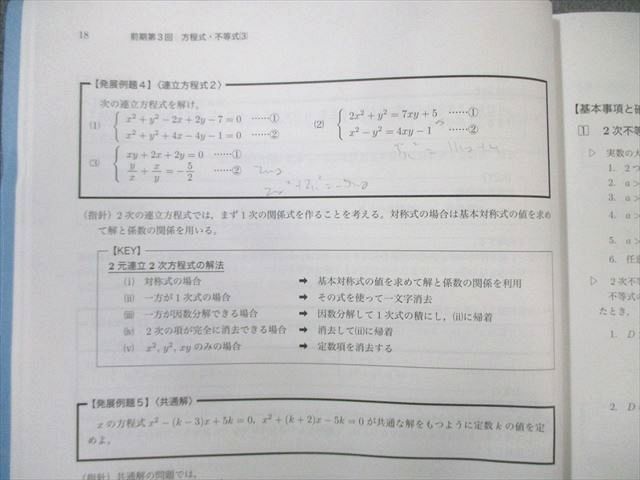 18 前期第3回 方程式・不等式③
【発展例題4】〈連立方程式2〉
次の連立方程式を解け。
(1) { x² + y² − 2x + 2y − 7 = 0 ……①
x² + y² + 4x − 4y − 1 = 0 ……②
(2) { 2x² + y² = 7xy + 5 ……①
x² − y² = 4xy − 1 ……②
(3) { xy + 2x + 2y = 0 ……①
y/x + x/y = −5/2 ……②
(指針) 2次の連立方程式では,まず1次の関係式を作ることを考える。対称式の場合は基本対称式の値を求め
て解と係数の関係を用いる。
【KEY】
2元連立2次方程式の解法
(i) 対称式の場合 ➡ 基本対称式の値を求めて解と係数の関係を利用
(ii) 一方が1次式の場合 ➡ その式を使って一文字消去
(iii) 一方が因数分解できる場合 ➡ 因数分解して1次式の積にし,(ii)に帰着
(iv) 2次の項が完全に消去できる場合 ➡ 消去して(ii)に帰着
(v) x², y², xy のみの場合 ➡ 定数項を消去する
【発展例題5】〈共通解〉
xの方程式 x² − (k − 3)x + 5k = 0, x² + (k + 2)x − 5k = 0 が共通な解をもつように定数 k の値を定
めよ。
(指針) 共通解の問題では,
【基本事項と
1 2次不等
▷ 実数の大
1. 2つ
2. a >
3. a >
4. a >
5. a >
6. 任意
▷ 2次不等
不等式の
たとき,
1. D
2. D